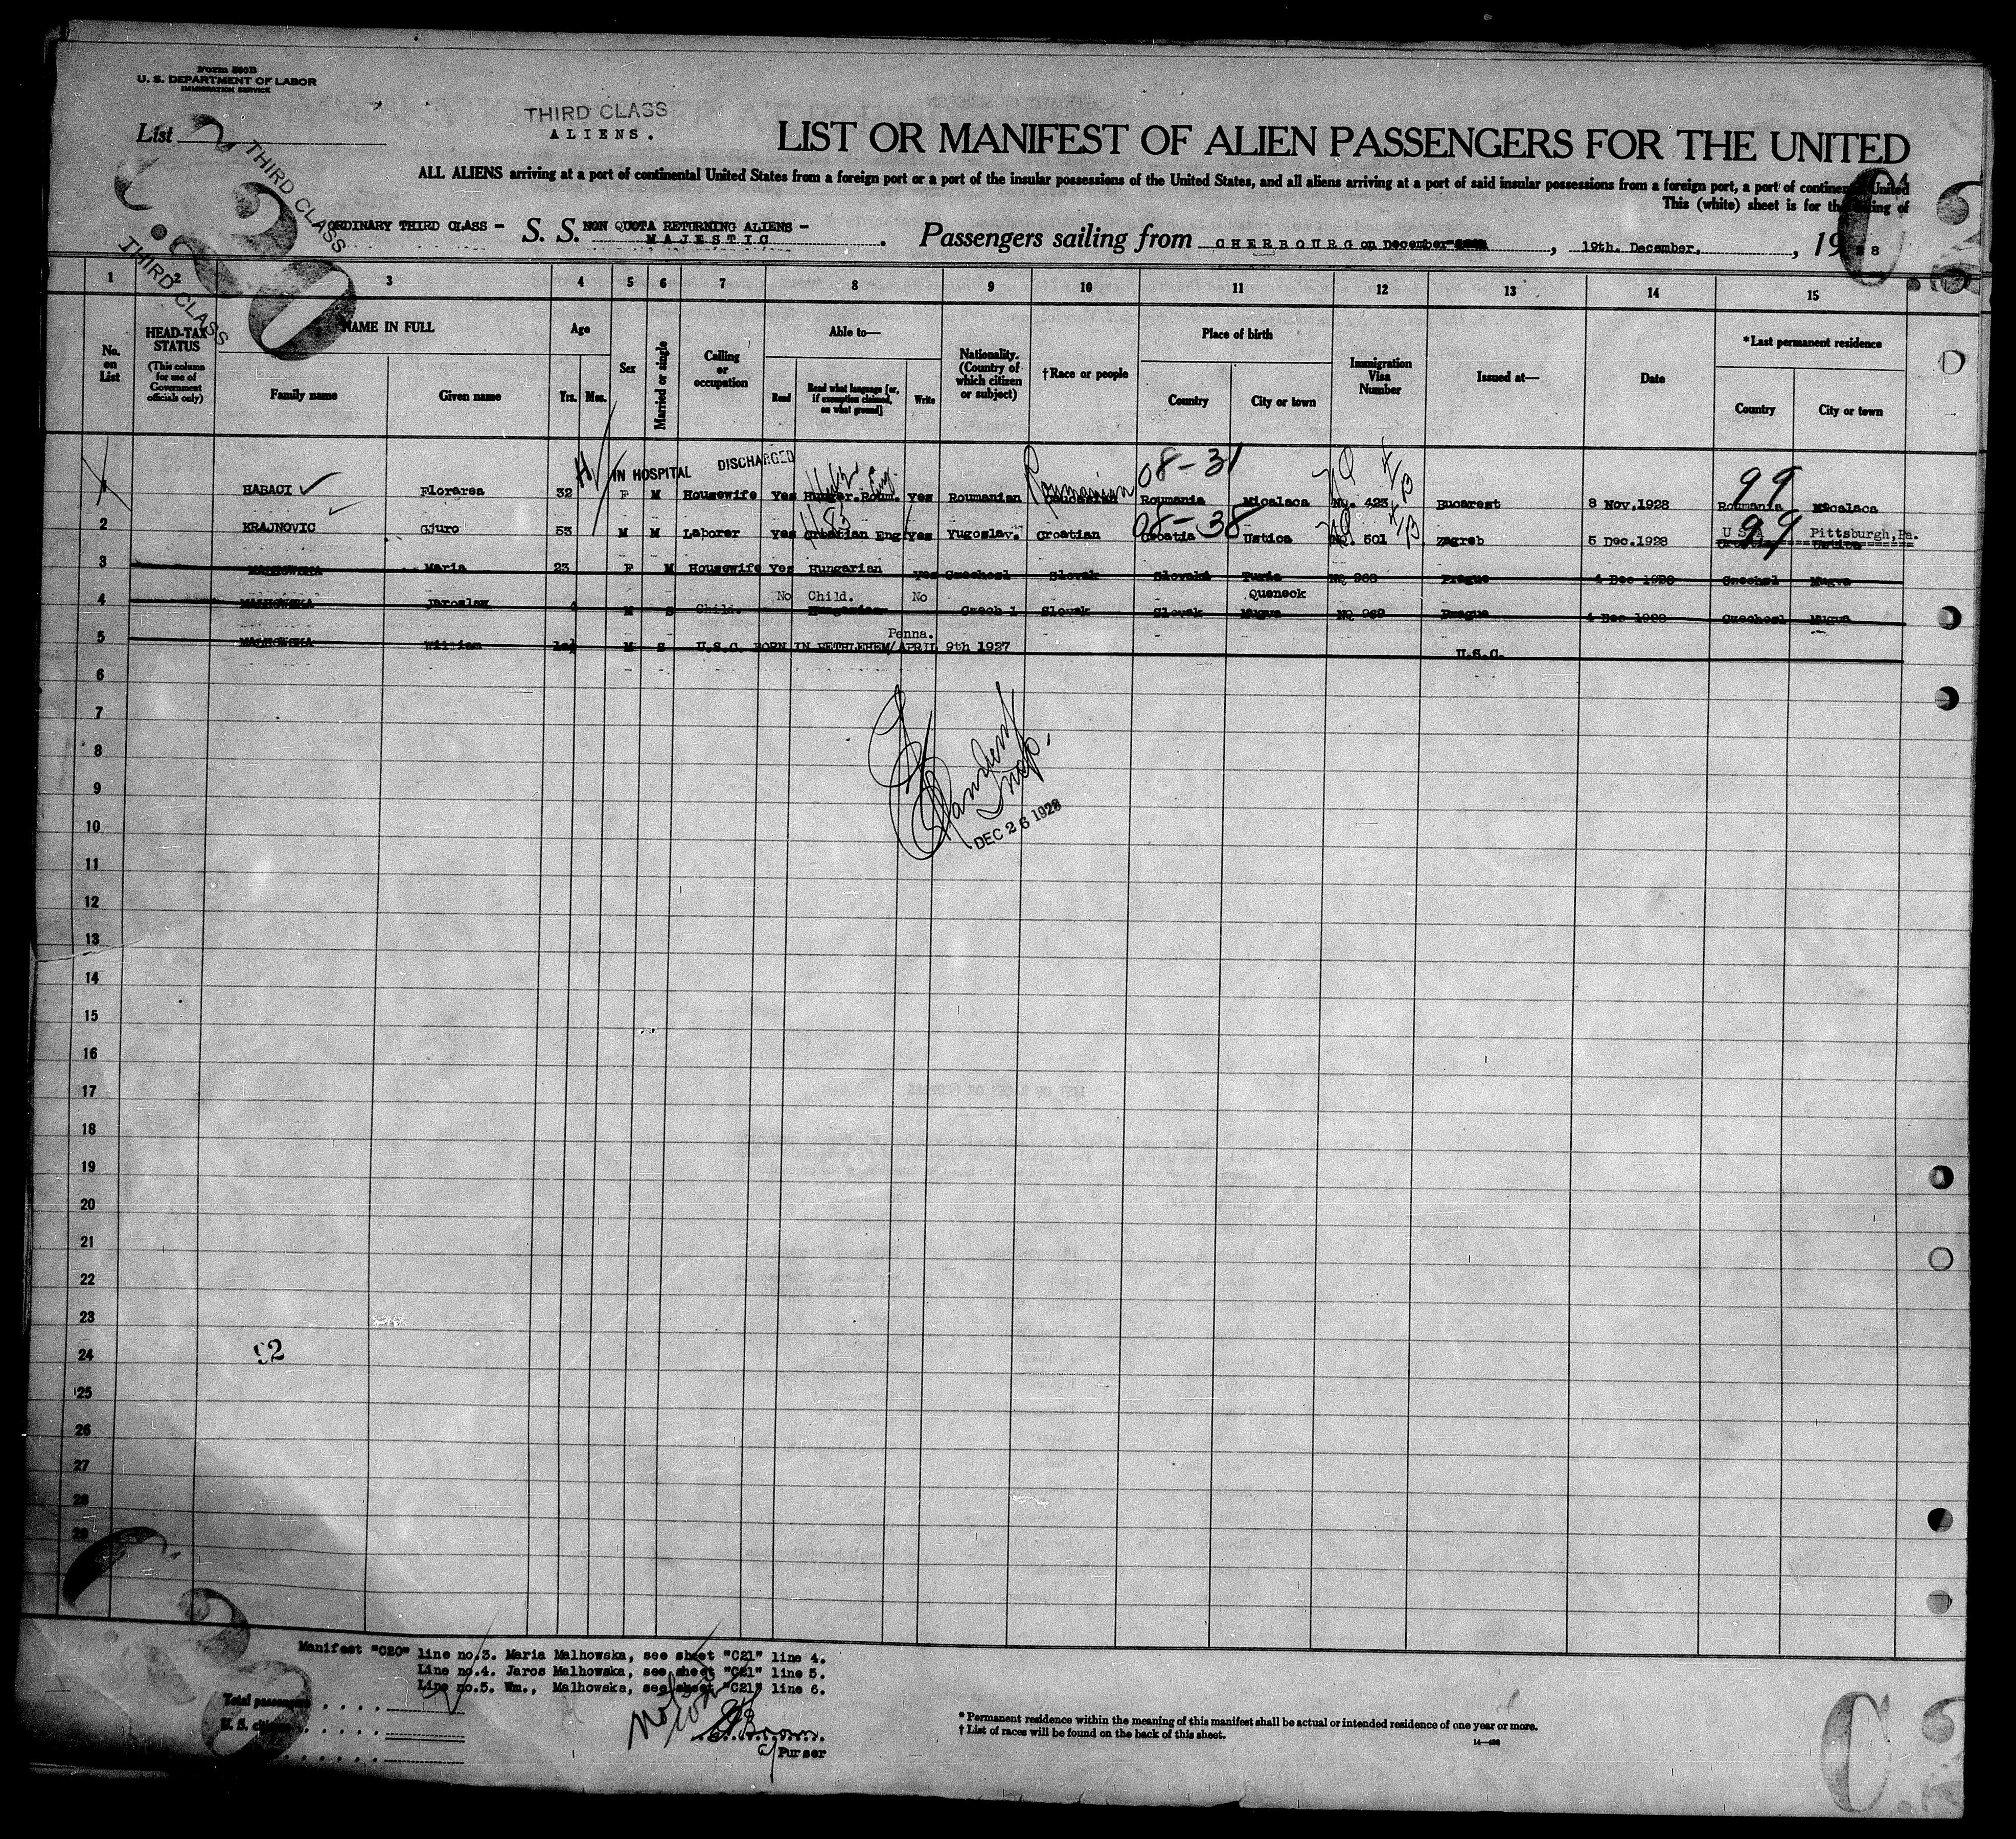 Form 500B
U. S. DEPARTMENT OF LABOR
IMMIGRATION SERVICE
List 2
THIRD CLASS
ALIENS.
THIRD CLASS
THIRD CLASS
LIST OR MANIFEST OF ALIEN PASSENGERS FOR THE UNITED
ALL ALIENS arriving at a port of continental United States from a foreign port or a port of the insular possessions of the United States, and all aliens arriving at a port of said insular possessions from a foreign port, a port of continental United
This (white) sheet is for the listing of
ORDINARY THIRD CLASS - S. S. NON QUOTA RETURNING ALIENS -
MAJESTIC . Passengers sailing from CHERBOURG on December , 19th. December, , 19 8
1 2 3 4 5 6 7 8 9 10 11 12 13 14 15
No. on List
HEAD-TAX STATUS
(This column for use of Government officials only)
NAME IN FULL
Family name Given name
Age
Yrs. Mos.
Sex
Married or single
Calling or occupation
Able to—
Read Read what language [or, if exemption claimed, on what ground] Write
Nationality. (Country of which citizen or subject)
†Race or people
Place of birth
Country City or town
Immigration Visa Number
Issued at—
Date
*Last permanent residence
Country City or town
IN HOSPITAL DISCHARGED 08-31 99
1 HABACI Florarea 32 F M Housewife Yes Hungar.Roum. Yes Roumanian Roumanian Roumania Micalaca No. 423 Bucarest 8 Nov.1928 Roumania Micalaca
08-38 99
2 KRAJNOVIC Gjuro 53 M M Laborer Yes Croatian Eng Yes Yugoslav. Croatian Croatia Ustica No. 501 Zagreb 5 Dec.1928 U S A Pittsburgh,Pa.
3 MALHOWSKA Maria 23 F M Housewife Yes Hungarian Yes Czechosl Slovak Slovaki Turia No 968 Prague 4 Dec 1928 Czechosl Mugva
No Child. No Queneck
4 MALHOWSKA Jaroslaw 4 M S Child. Hungarian Czech l Slovak Slovak Mugva No 969 Prague 4 Dec 1928 Czechosl Mugva
Penna.
5 MALHOWSKA William M S U.S.C. BORN IN BETHLEHEM/APRIL 9th 1927 U.S.C.
6
7
8
9
10
DEC 26 1928
11
12
13
14
15
16
17
18
19
20
21
22
23
24
92
25
26
27
28
29
Manifest "C20" line no.3. Maria Malhowska, see sheet "C21" line 4.
Line no.4. Jaros Malhowska, see sheet "C21" line 5.
Line no.5. Wm., Malhowska, see sheet "C21" line 6.
Total passengers
U. S. citizens
Purser
* Permanent residence within the meaning of this manifest shall be actual or intended residence of one year or more.
† List of races will be found on the back of this sheet.